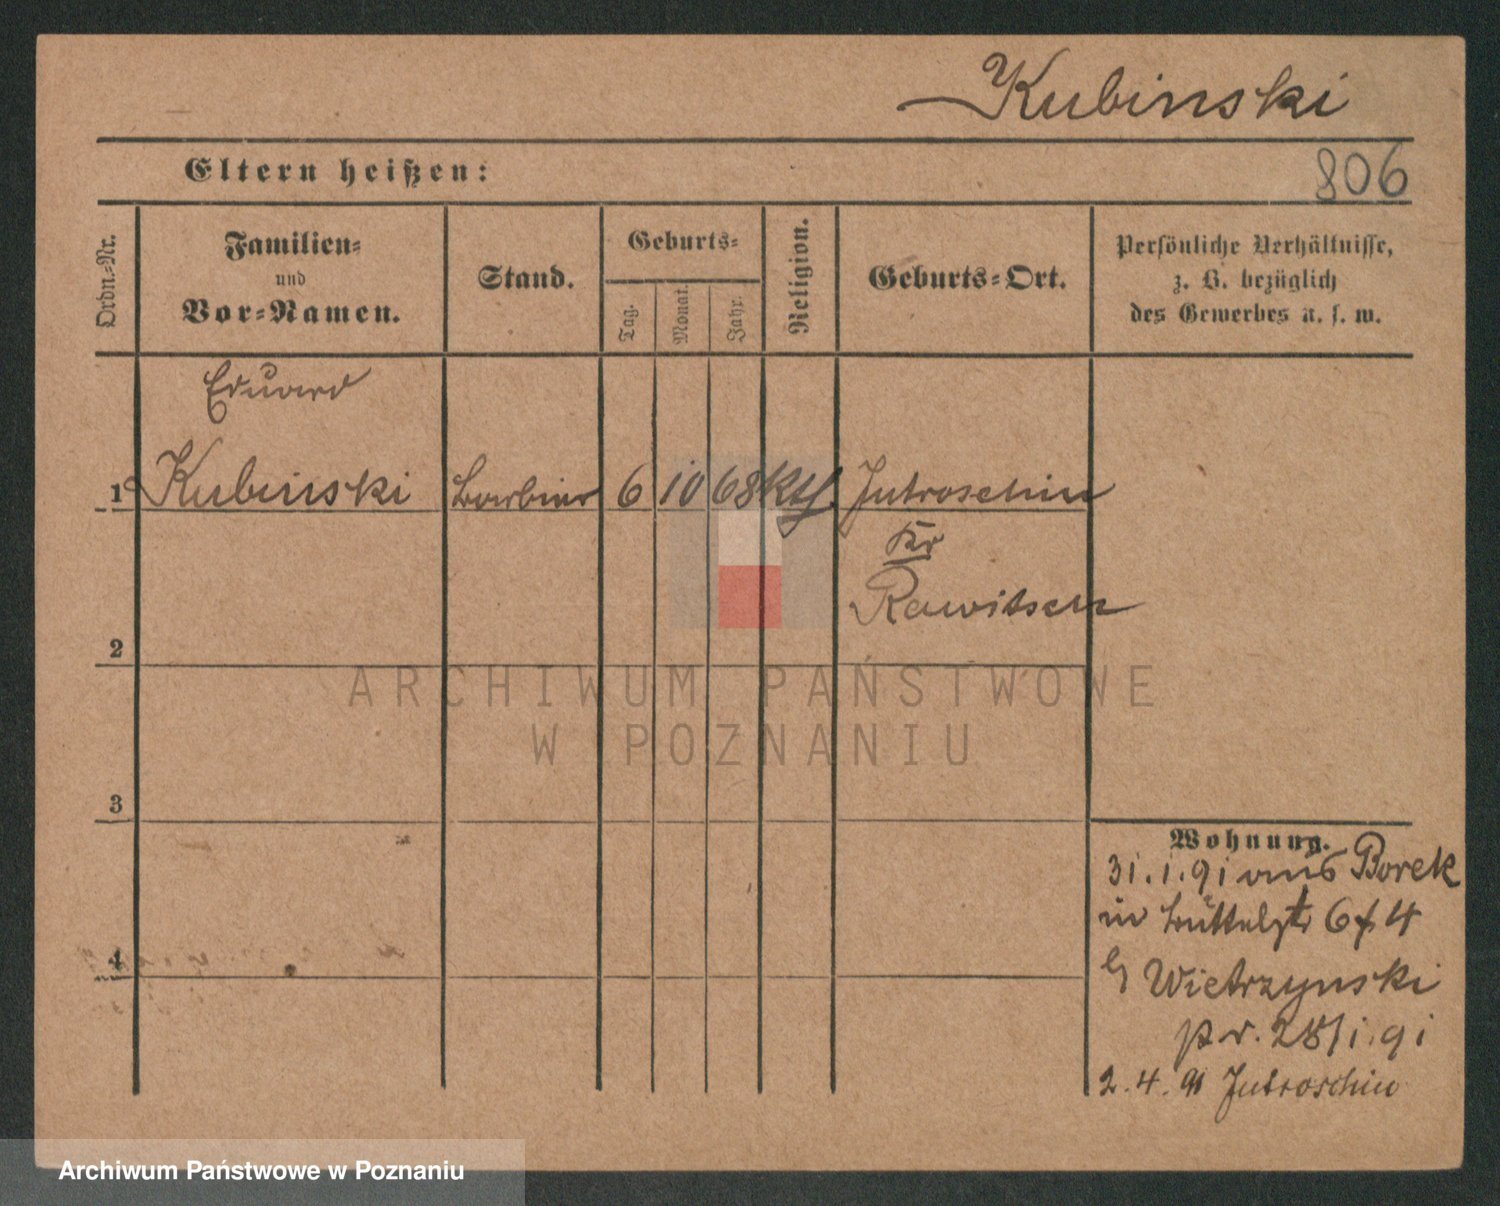 Kubinski
Eltern heißen:
806
Ordn.-Nr.
Familien-
und
Vor-Namen.
Stand.
Geburts-
Tag.
Monat.
Jahr.
Religion.
Geburts-Ort.
Persönliche Verhältnisse,
z. B. bezüglich
des Gewerbes u. s. w.
Eduard
1 Kubinski Barbier 6 10 68 kth. Jutroschin
Kr
Rawitsch
2
ARCHIWUM PAŃSTWOWE
W POZNANIU
3
Wohnung.
31.1.91 aus Borek
in 6 4
4
b Wietrzynski
pr. 28/1.91
2.4.91 Jutroschin
Archiwum Państwowe w Poznaniu